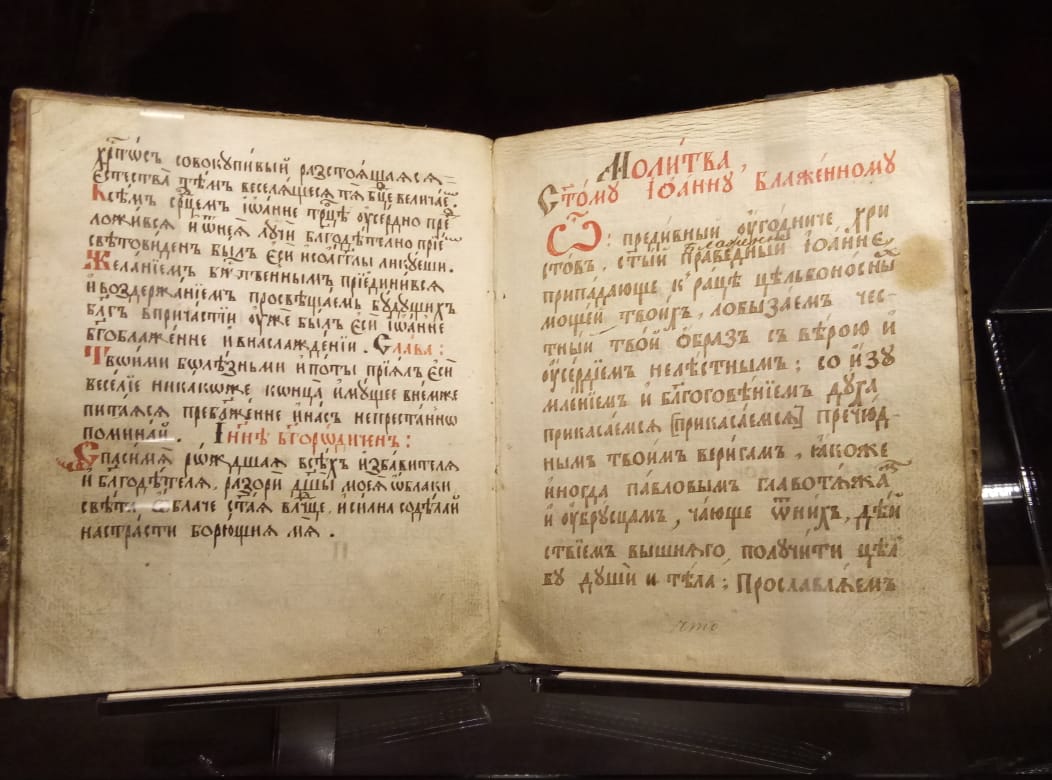 хр҃тѡ́съ совокупи́вый разстоѧ́щаѧсѧ
є҆стества̀ тѣ́мъ веселѧ́щесѧ тѧ̀ бц҃е велича́е
Всѣ́мъ ср҃цемъ і҆ѡа́нне трⷪ҇цѣ ᲂу҆се́рдно пре
ложи́всѧ и҆ ѿ неѧ̀ лучѝ благодѣ́телно прїе́
свѣтови́денъ бы́лъ є҆сѝ и со а҆гг҃лы лику́еши.
Жела́нїемъ бж҃твеннымъ прїедини́всѧ
и҆ воздержа́нїемъ просвѣща́емь бу́дущихъ
бл҃гъ в прича́стїи ᲂу҆же́ бы́лъ є҆сѝ і҆ѡа́нне
бг҃облаже́нне и҆ в наслажде́нїи. Сла́ва:
Твои́ми болѣ́зньми и҆ по́ты прїѧ́лъ є҆сѝ
весе́лїе никако́же конца̀ и҆му́щее в не́мже
пита́ѧсѧ пребл҃же́нне и҆ на́съ непреста́нно
помина́й. І҆ нн҃ѣ бг҃оро́диченъ:
Спаси́ мѧ ро́ждшаѧ всѣ́хъ и҆зба́вителѧ
и҆ бл҃годѣ́телѧ, разорѝ дш҃ѝ моеѧ̀ ѡ҆́блаки
свѣ́та ѻ҆́блаче ст҃а́ѧ влⷣчце, и҆ си́лна содѣ́лай
на стра́сти борю́щиѧ мѧ̀.
Моли́тва,
Ст҃о́му І҆ѡа́нну блаже́нному
Ѽ: преди́вный ᲂу҆го́дниче хри
сто́въ, ст҃ы́й пра́ведный І҆ѡа́нне,
припа́дающе к̾ ра́цѣ цѣльбоно́сны
моще́й твои́хъ, лобыза́емъ чес-
тны́й тво́й ѻ҆́бразъ с вѣ́рою и҆
ᲂу҆се́рдїемъ неле́стнымъ; со и҆зу
мле́нїемъ и҆ благоговѣ́нїемъ ду́ха
прикаса́емсѧ [прикаса́емсѧ] пречю́д-
нымъ твои́мъ вери́гамъ, ꙗ҆́коже
и҆ногда̀ па́вловымъ главотѧ́жа
и҆ ᲂу҆бру́сцамъ, ча́юще ѿ ни́хъ, дѣ́й
ствїемъ вы́шнѧго, получи́ти цѣл
бу души̂ и тѣ́ла; Прославлѧ́емъ
что